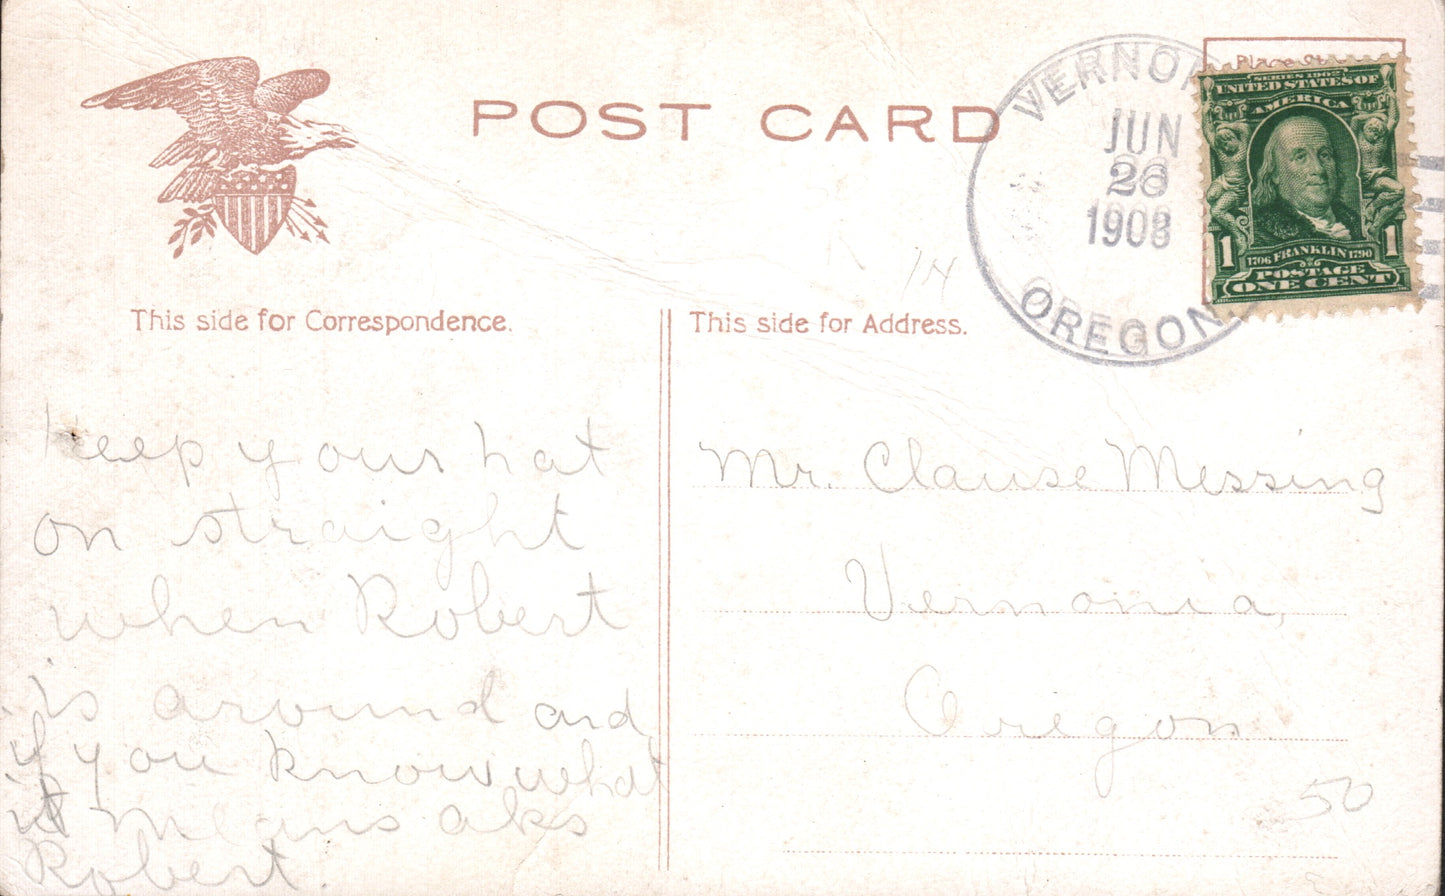 POST CARD
VERNON
JUN
26
1908
OREGON
Place
SERIES 1902
UNITED STATES OF
AMERICA
1 1
1706 FRANKLIN 1790
POSTAGE
ONE CENT
14
This side for Correspondence.
Keep your hat
on straight
when Robert
is around and
if you know what
it means aks
Robert.
This side for Address.
Mr. Clause Messing
Vernonia,
Oregon.
50